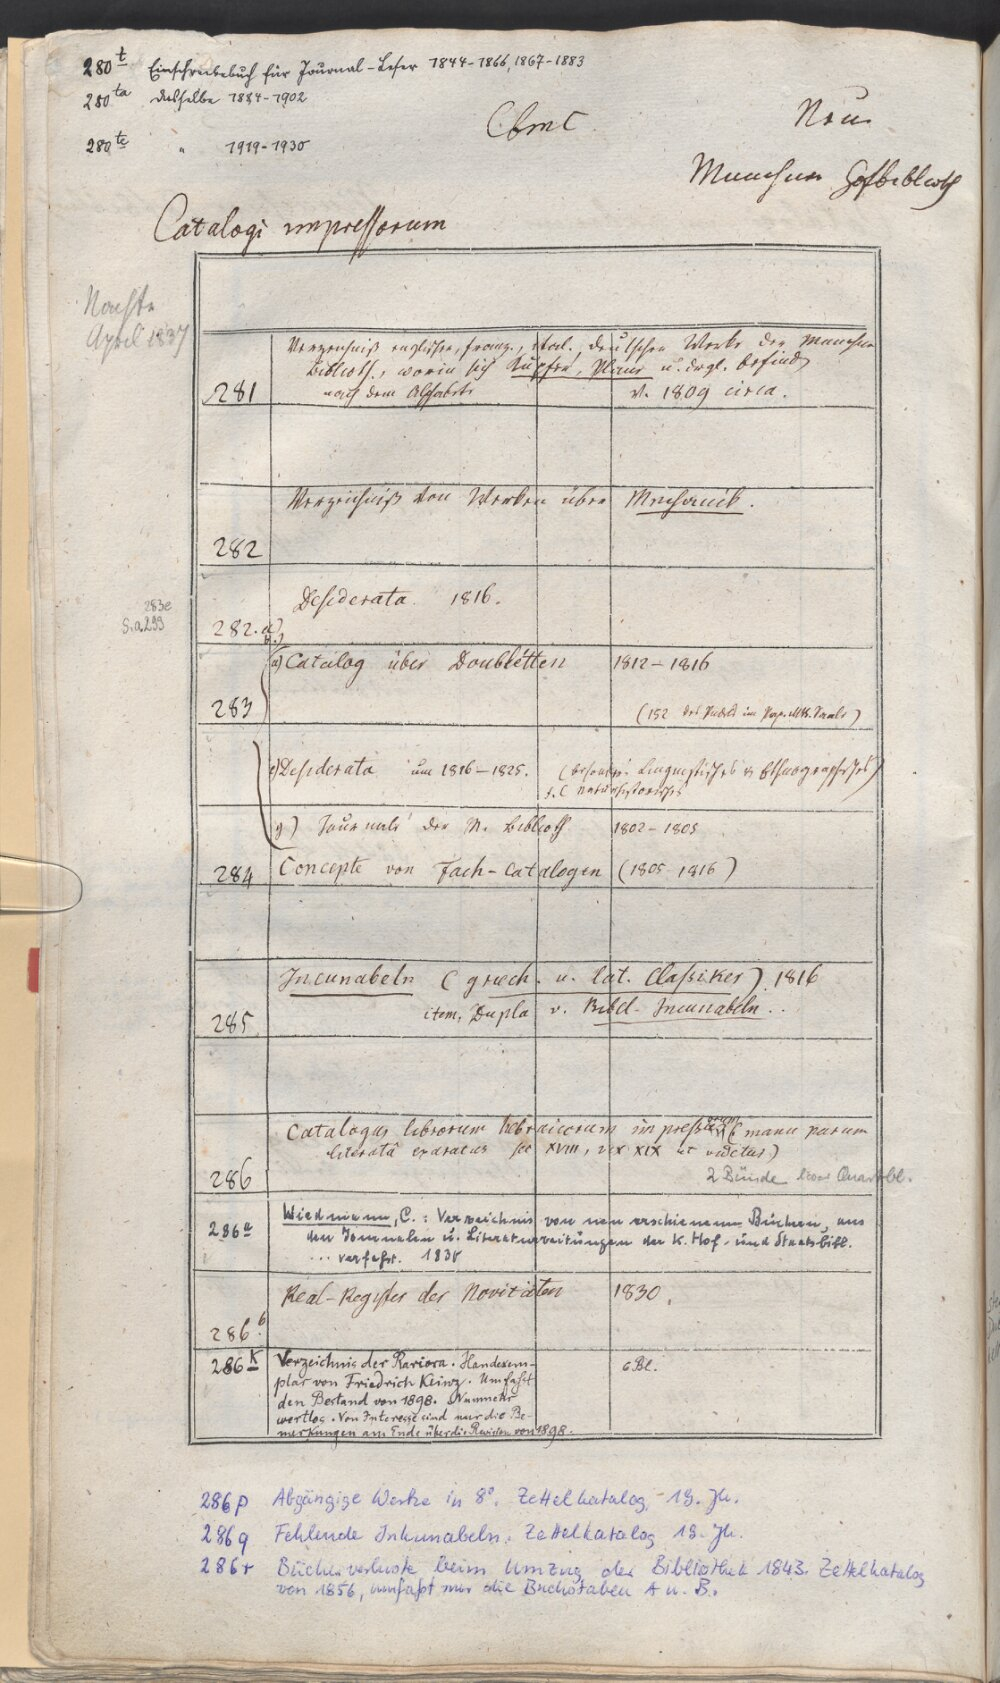 280t Einschreibebuch für Journal-Leser 1844-1866, 1867-1883
280ta dasselbe 1884-1902
280tc " 1919-1930
Cbm C
Neu
Munchen Hofbiblioth
Catalogi impressorum
Nachtr
April 1837
281 Verzeichniß englischer, franz., ital., deutscher Werke der Münchn
Biblioth., worin sich Kupfer, Plane u. drgl. befind
nach dem Alphabete v. 1809 circa.
282 Verzeichniß von Werken über Mechanik.
283e
S. a. 299
282. a) Desiderata 1816.
283 a) Catalog über Doubletten 1812-1816
(152 des Publ. im Pap. MSS. Saale)
e) Desiderata um 1816-1825. (besonders Linguistisches u Ethnographisches)
naturhistorisches
g) Journale der M. Biblioth 1802-1805
284 Concepte von Fach-Catalogen (1805-1816)
285 Incunabeln (griech. u. lat. Classiker). 1816
item, Dupla v. Bibel-Incunabeln..
286 Catalogus librorum hebraicorum impressorum (manu parum
literatâ exaratus sec XVIII, vix XIX ut videtur)
2 Bände
286a Wiedmann, C.: Verzeichnis von neu erschienenen Büchern, aus
den Journalen u. Literaturzeitungen der K. Hof- und Staatsbibl.
... verfasst. 1830
286b Real-Register der Novitäten 1830.
286k Verzeichnis der Rariora. Handexem-
plar von Friedrich Keinz. Umfaßt
den Bestand von 1898. Nunmehr
wertlos. Von Interesse sind nur die Be-
merkungen am Ende über die Revision von 1898.
6 Bl.
286p Abgängige Werke in 8°. Zettelkatalog, 19. Jh.
286q Fehlende Inkunabeln. Zettelkatalog 19. Jh.
286r Bücherverluste beim Umzug der Bibliothek 1843. Zettelkatalog
von 1856, umfaßt nur die Buchstaben A u. B.